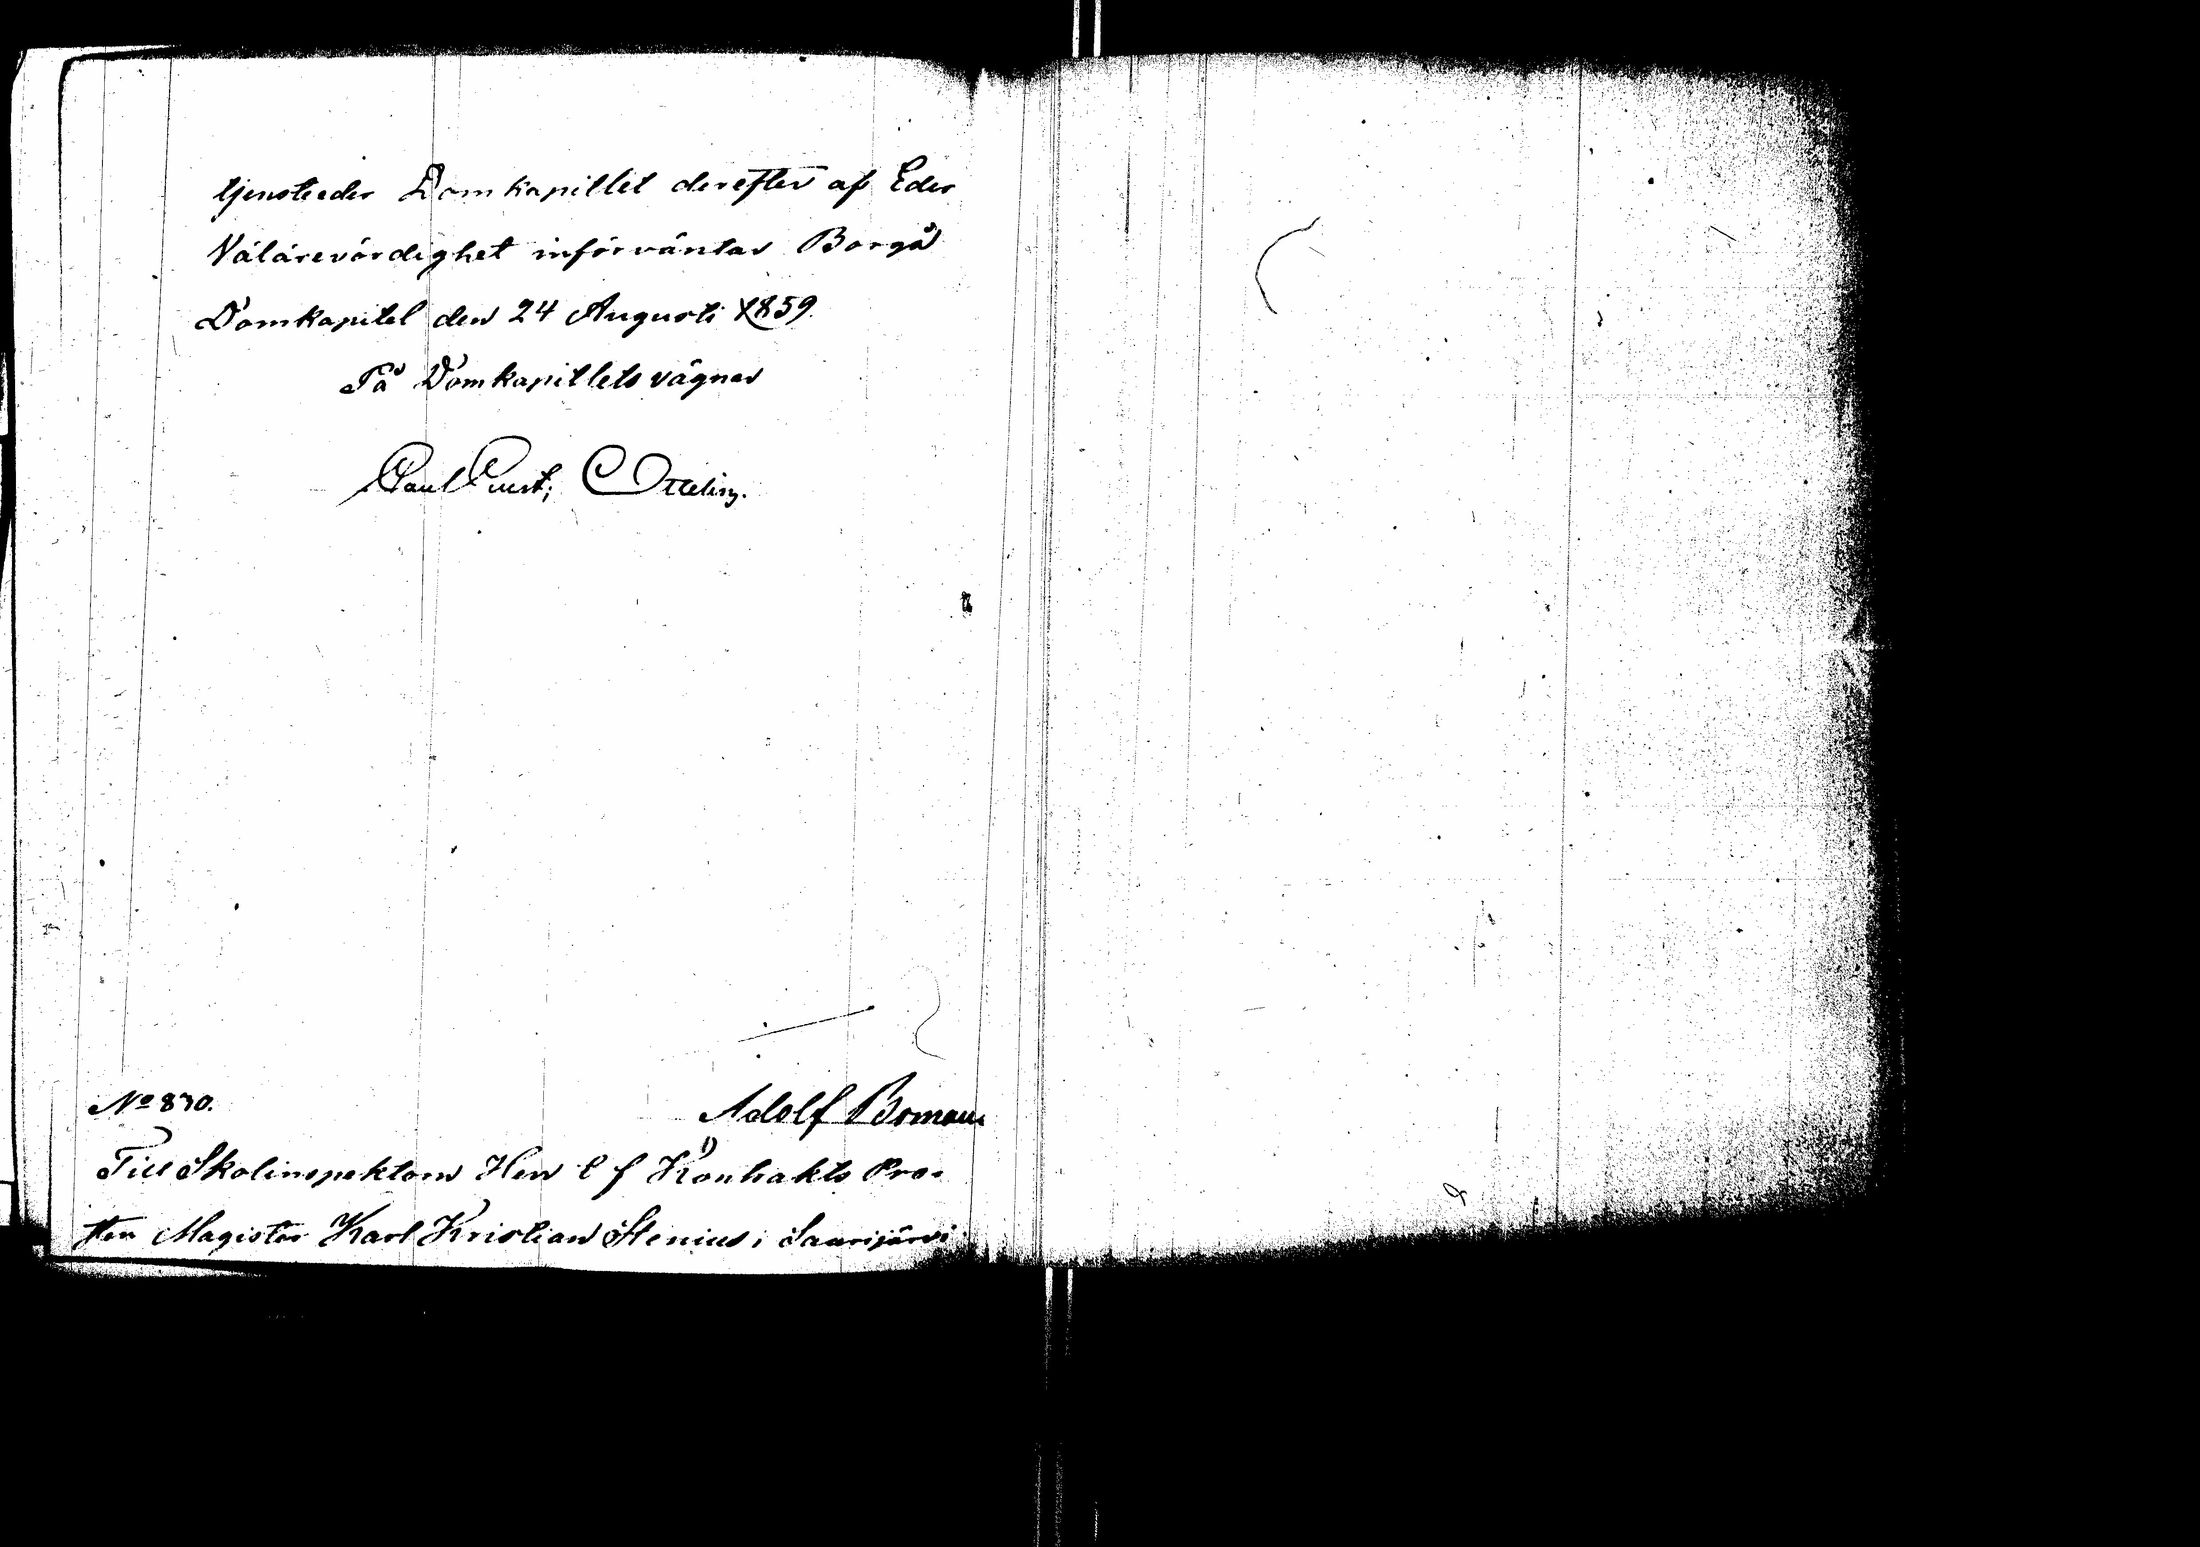 tjensteeder Domkapitlet derefter af Eder
Välärevördighet införväntar Borgå
Domkapitel den 24 Augusti 1859.
På Domkapitlets vägnar
Paul Ernst; C Ottelin.
Nº 870.
Adolf Boman
Till Skolinspektorn Herr t f Kontrakts Pro-
sten Magister Karl Kristian Stenius i Saarijärvi